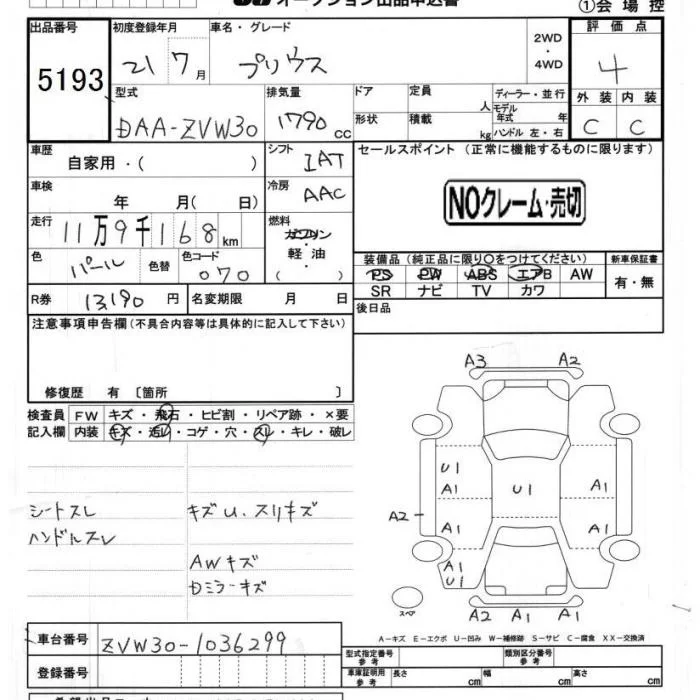 オークション出品申込書 ①会場控
出品番号 初度登録年月 車名・グレード 2WD・4WD 評価点
5193 21 7月 プリウス 4
型式 排気量 ドア 定員 人 ディーラー・並行 外装 内装
DAA-ZVW30 1790cc 形状 積載 kg モデル年式 年 ハンドル 左・右 C C
車歴 自家用・( ) シフト IAT セールスポイント (正常に機能するものに限ります)
車検 年 月( 日) 冷房 AAC NOクレーム・売切
走行 11万9千168km 燃料 ガソリン・軽油・( )
色 パール 色替 色コード 070 装備品 (純正品に限り○をつけてください) 新車保証書
PS PW ABS エアB AW 有・無
SR ナビ TV カワ
R券 13,190円 名変期限 月 日 後日品
注意事項申告欄 (不具合内容等は具体的に記入して下さい)
修復歴 有 〔箇所 〕
検査員 FW キズ・飛石・ヒビ割・リペア跡・×要
記入欄 内装 キズ・汚レ・コゲ・穴・スレ・キレ・破レ
シートスレ キズU.スリキズ
ハンドルスレ
AWキズ
Dミラーキズ
A3 A2
U1
A1 U1 A1
A2 A1 A1
A1
U1
スペア A2 A1 A1
A-キズ E-エクボ U-凹み W-補修跡 S-サビ C-腐食 XX-交換済
車台番号 ZVW30-1036299
型式指定番号 参考 類別区分番号 参考
登録番号 車庫証明用 参考 長さ cm 幅 cm 高さ cm